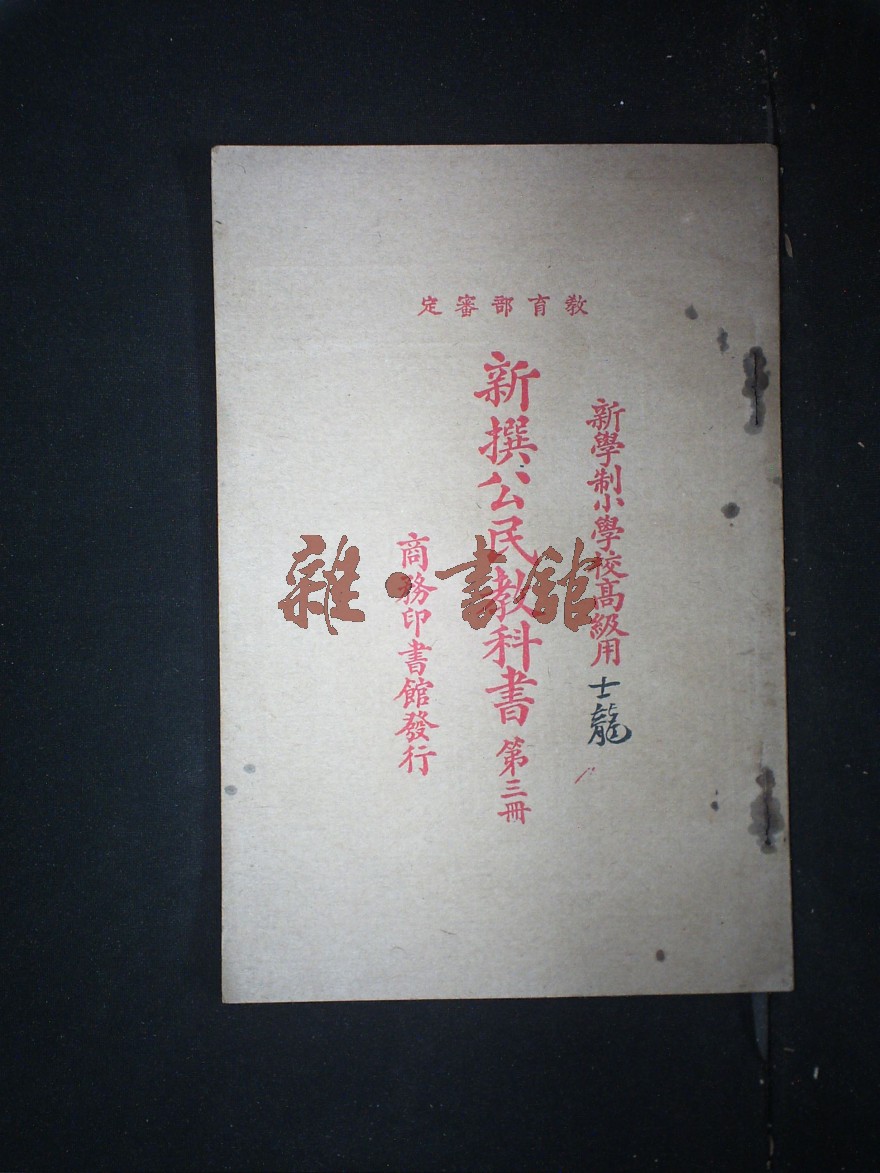 教育部審定
新學制小學校高級用 士龍
新撰公民教科書 第三冊
商務印書館發行
雜·書館